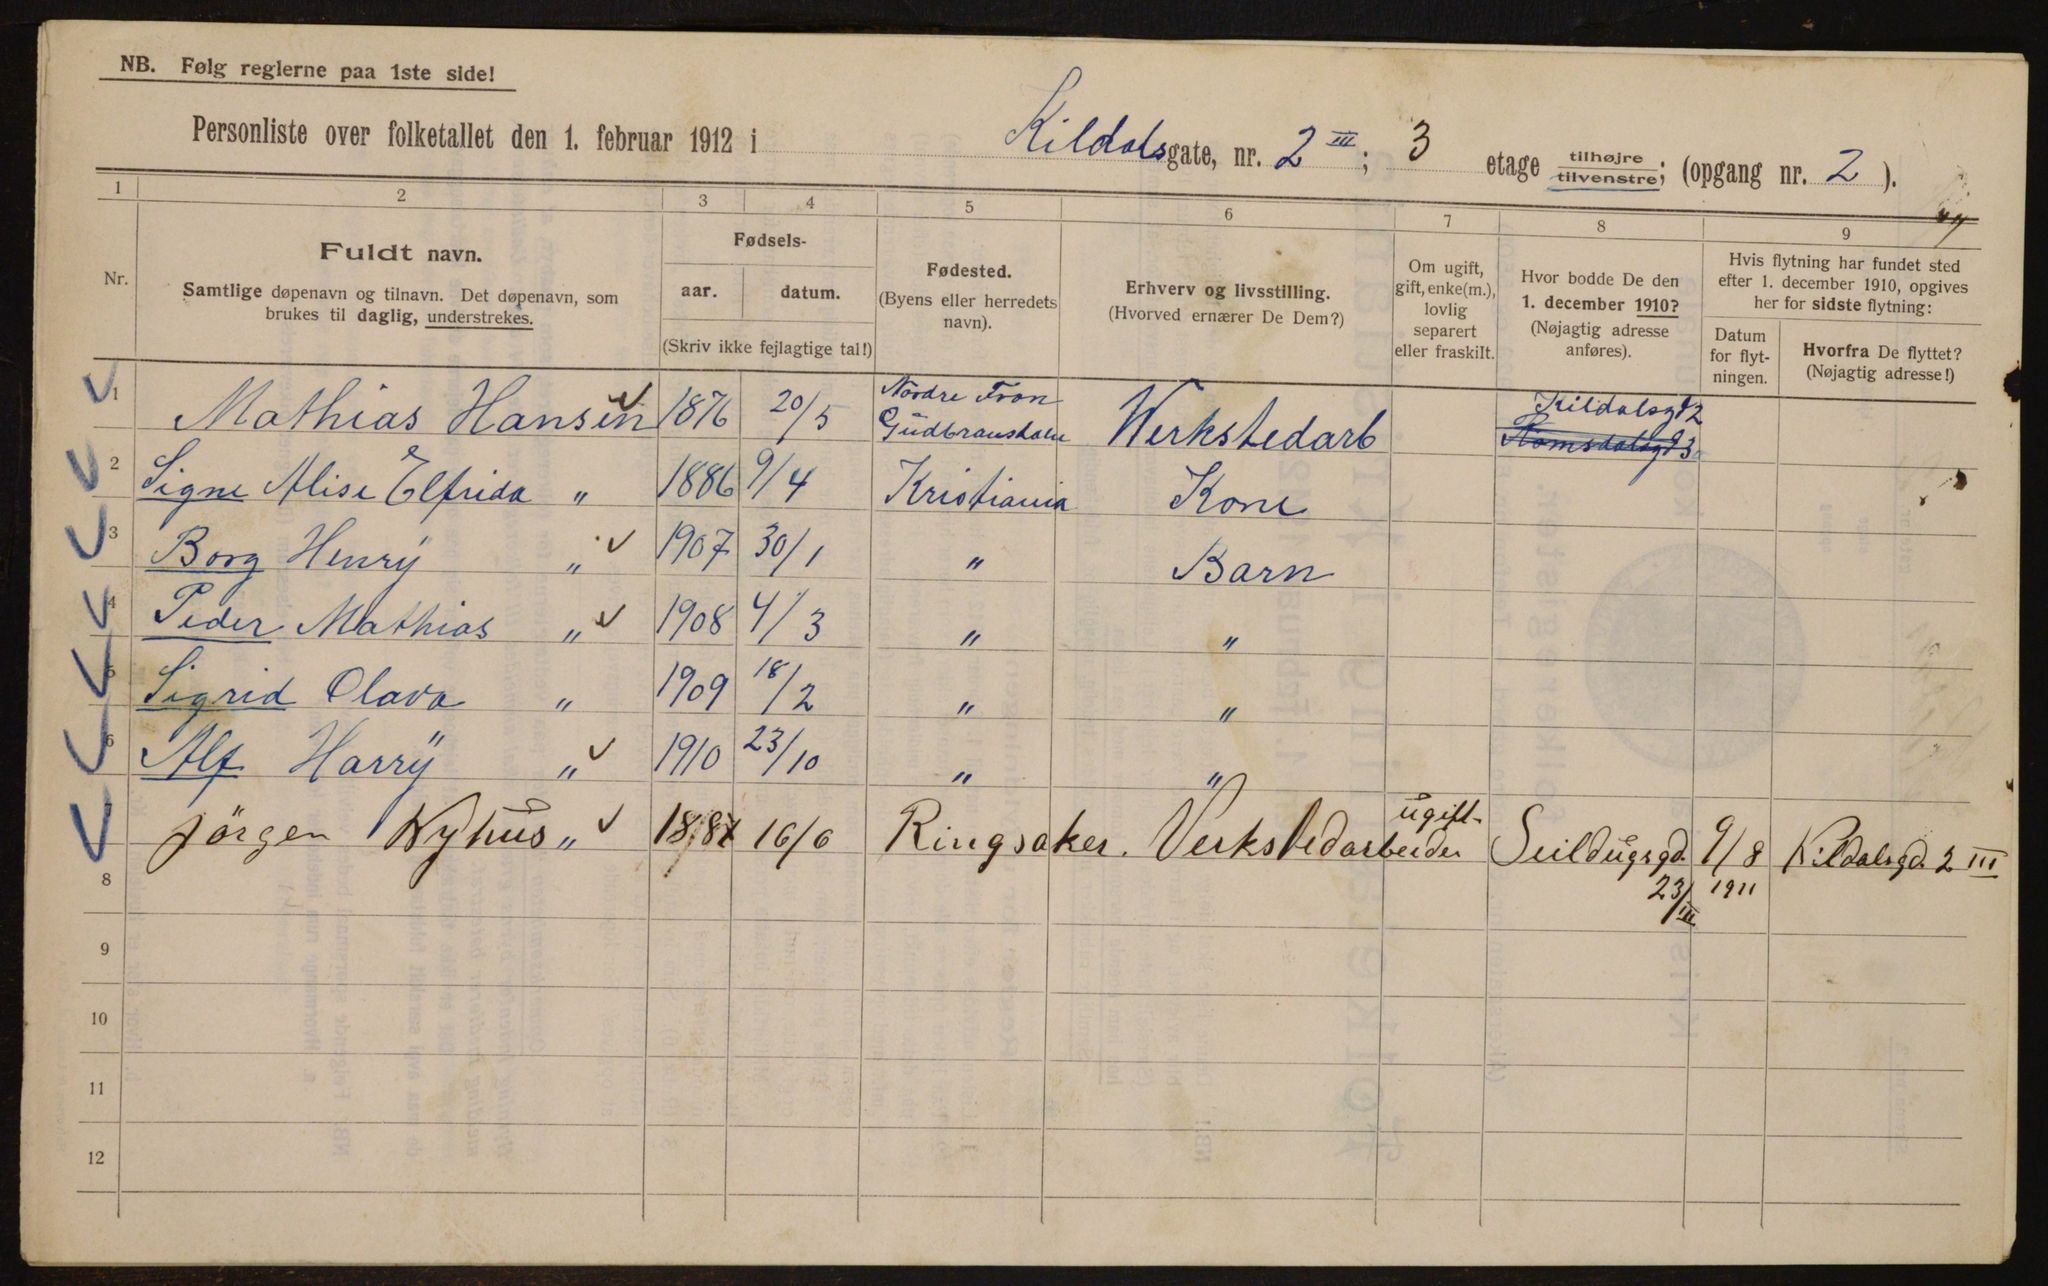 NB. Følg reglerne paa 1ste side!
Personliste over folketallet den 1. februar 1912 i Kildalsgate, nr. 2 III; 3 etage tilhøjre tilvenstre; (opgang nr. 2).
1 2 3 4 5 6 7 8 9
Nr.
Fuldt navn.
Samtlige døpenavn og tilnavn. Det døpenavn, som
brukes til daglig, understrekes.
Fødsels-
aar. datum.
(Skriv ikke fejlagtige tal!)
Fødested.
(Byens eller herredets
navn).
Erhverv og livsstilling.
(Hvorved ernærer De Dem?)
Om ugift,
gift, enke(m.),
lovlig
separert
eller fraskilt.
Hvor bodde De den
1. december 1910?
(Nøjagtig adresse
anføres).
Hvis flytning har fundet sted
efter 1. december 1910, opgives
her for sidste flytning:
Datum
for flyt-
ningen.
Hvorfra De flyttet?
(Nøjagtig adresse!)
1 Mathias Hansen 1876 20/5 Nordre Fron Gudbransdalen Werkstedarb Kildalsgd 2 Romsdalsgd 3
2 Signe Alise Elfrida " 1886 9/4 Kristiania Kone
3 Borg Henry " 1907 30/1 " Barn
4 Peder Mathias " 1908 4/3 " "
5 Sigrid Olava " 1909 18/2 " "
6 Alf Harry " 1910 23/10 " "
7 Jörgen Nyhus " 1887 16/6 Ringsaker. Verkstedarbeider ugift Seildugsgd. 23/III 9/8 1911 Kildalsgd. 2 III
8
9
10
11
12